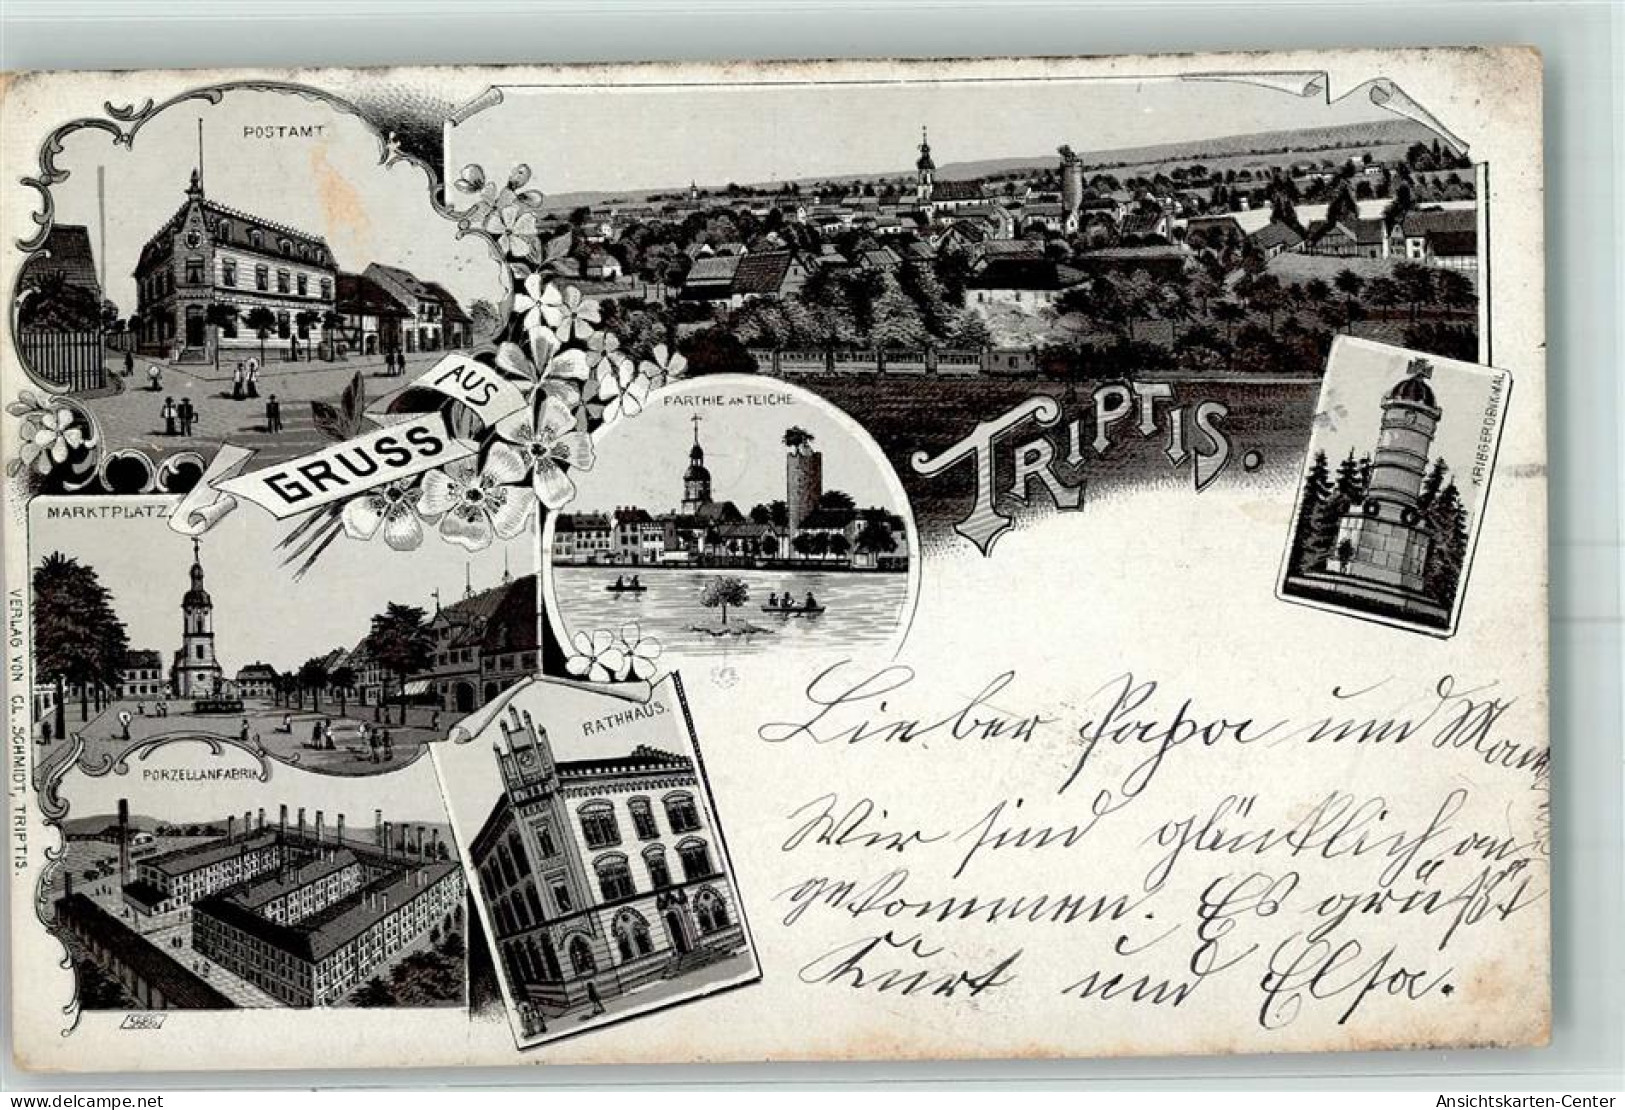 POSTAMT.
GRUSS AUS
TRIPTIS.
PARTHIE AN TEICHE
KRIEGERDENKMAL
MARKTPLATZ.
RATHHAUS.
PORZELLANFABRIK
VERLAG VON CL. SCHMIDT, TRIPTIS.
Lieber Papa und Mama
Wir sind glücklich an
gekommen. Es grüßt
Kurt und Elsa.
delcampe.net
Ansichtskarten-Center